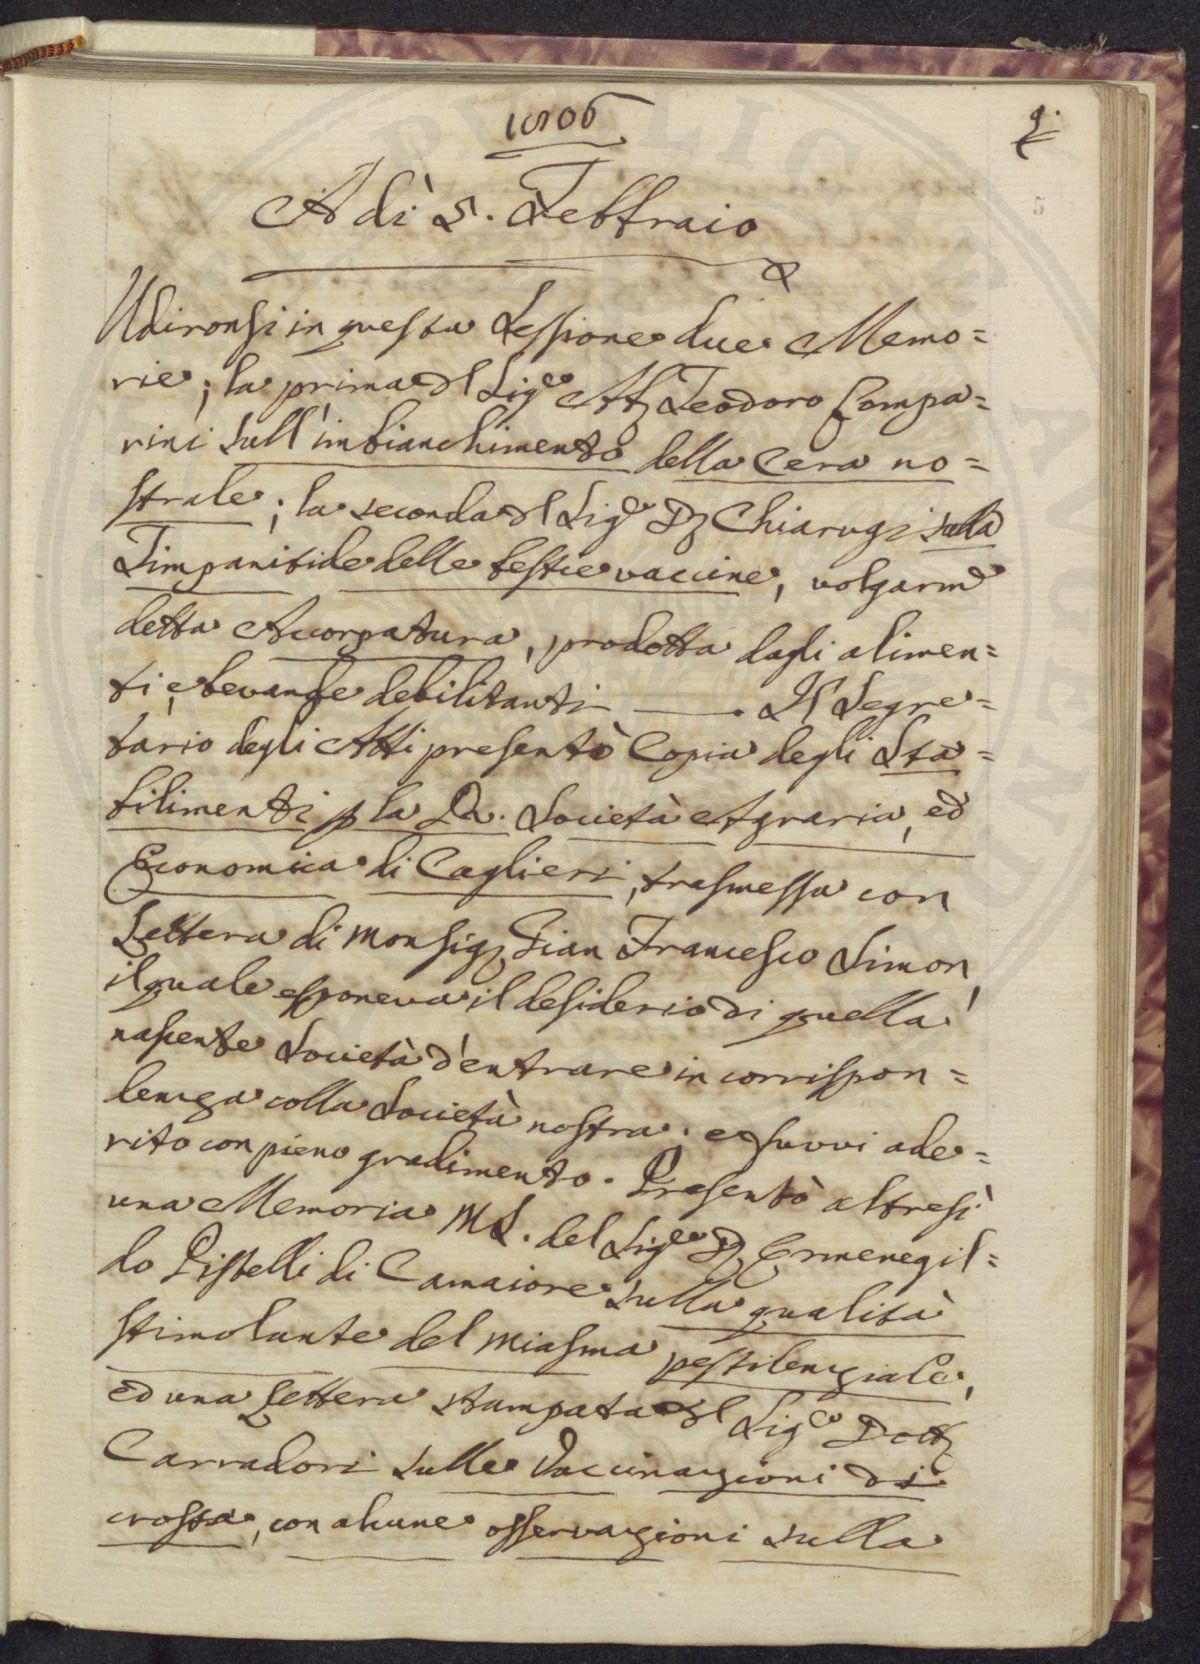 1806
A dì 5. Febbraio
Udironsi in questa Sessione due Memo=
rie; la prima del Sig.e Ab. Teodoro Compa=
rini sull'imbianchimento della Cera no=
strale; la seconda del Sig.e D. Chiarugi sulla
Timpanitide delle bestie vaccine, volgarme
detta Accorpatura, prodotta dagli alimen=
ti, e bevande debilitanti —. Il Segre=
tario degli Atti presentò Copia degli Sta=
bilimenti p la Rl. Società Agraria, ed
Economica di Caglieri, trasmessa con
Lettera di Monsig. Gian Francesco Simon,
il quale esponeva il desiderio di quella
nascente Società d'entrare in corrispon=
denza colla Società nostra; e fuvvi ade=
rito con pieno gradimento. Presentò altresì
una Memoria MS. del Sig.e D. Ermenegil=
do Pistelli di Camaiore sulla qualità
stimolante del miasma pestilenziale,
ed una Lettera stampata del Sig.e Dott.
Carradori sulle Vaccinazioni di
crosta, con alcune osservazioni sulla